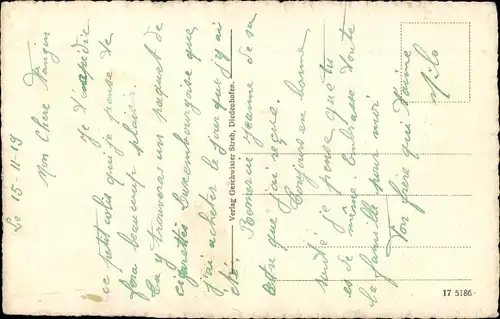 Le 15-11-19
Mon Chere Frangin
je t'expedie
ce petit colis qui je pense te
fera beaucoup plaisir.
tu y trouveras un paquet de
cigarettes Luxembourgoise que
j'ai acheter le jour que j'y ai
été.
Remercie Jeanne de sa
carte que j'ai reçue.
Toujours en bonne
santé je pense que tu
es de même. Embrasse toute
la famille pour moi
Ton frère que t'aime
Milo
Verlag Geschwister Streb, Diedenhofen.
17 5186